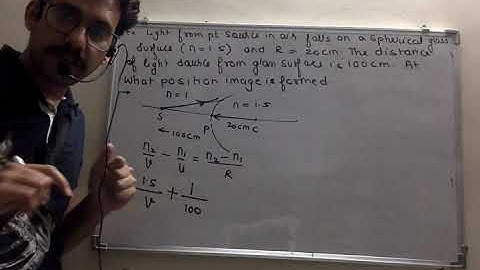 Light from pt source in air falls on a spherical glass
surface (n=1.5) and R = 20cm. The distance
of light source from glass surface is 100cm. At
what position image is formed
n=1
n=1.5
S
P
20cm
C
100cm
n₂/v - n₁/u = n₂-n₁/R
1.5/v + 1/100